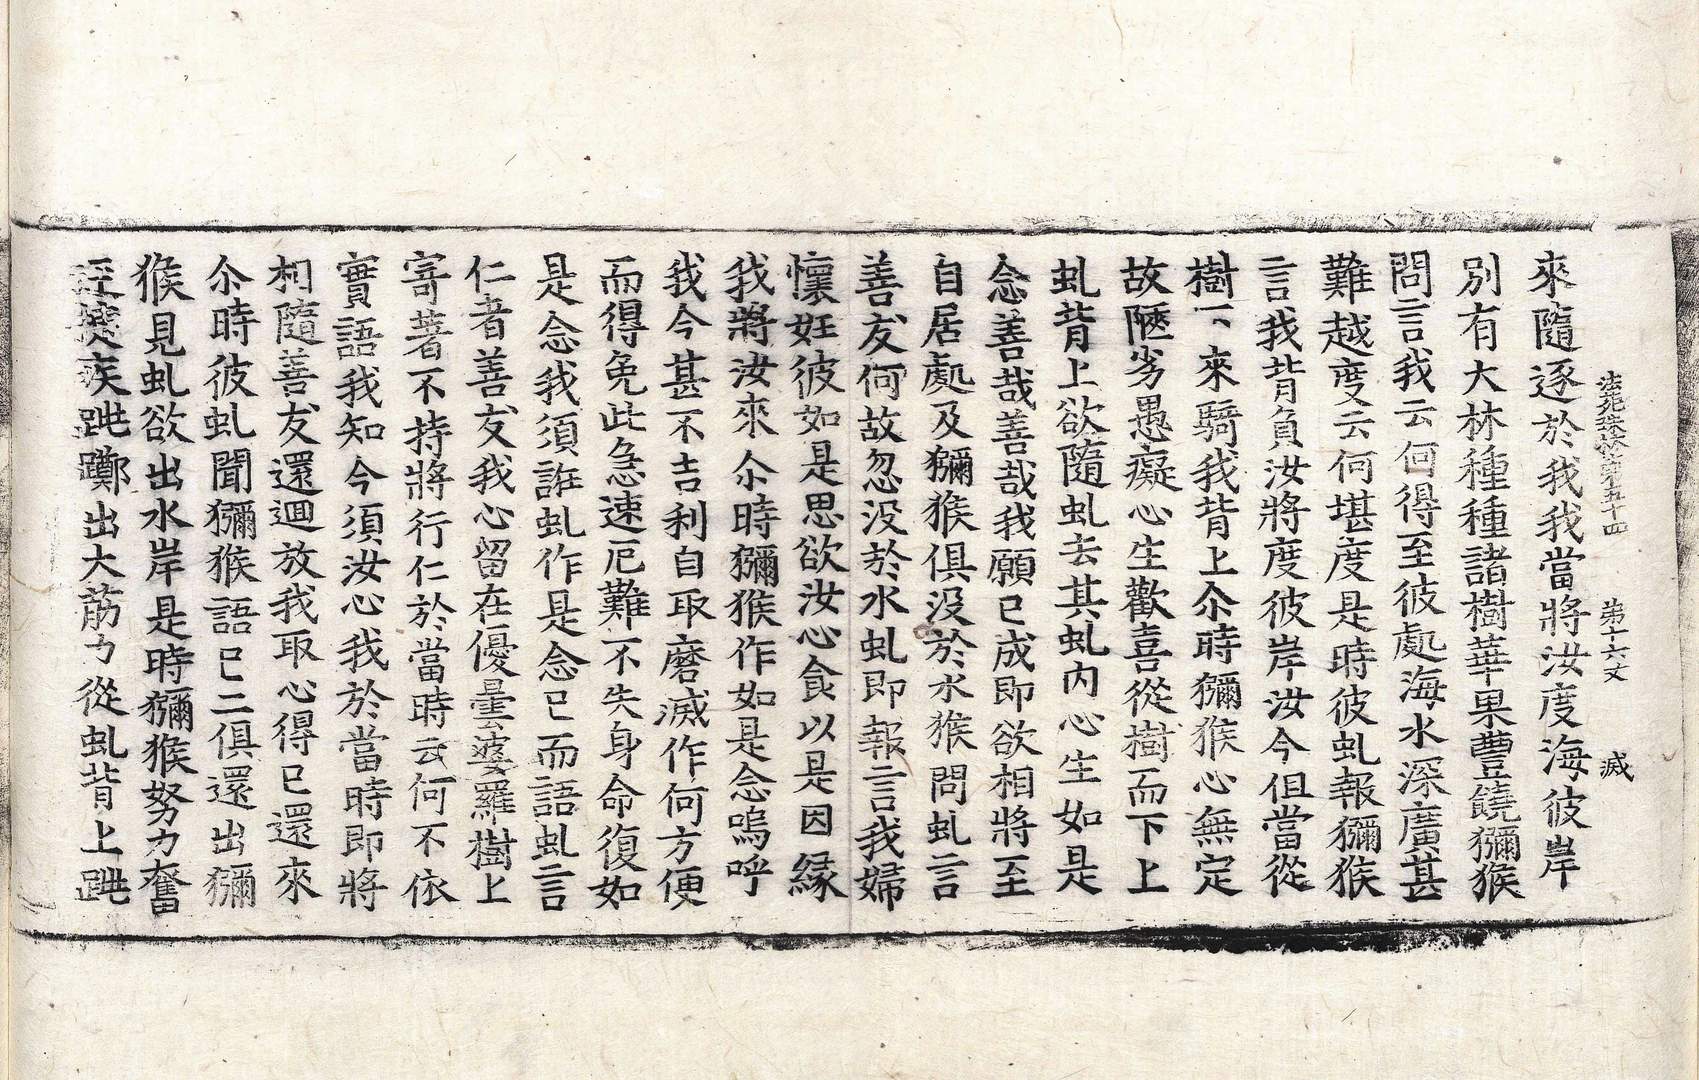 法苑珠林第五十四　第十六丈　滅
來隨逐於我我當將汝度海彼岸
別有大林種種諸樹華果豐饒獼猴
問言我云何得至彼處海水深廣甚
難越度云何堪度是時彼虬報獼猴
言我背負汝將度彼岸汝今但當從
樹下來騎我背上尒時獼猴心無定
故陋劣愚癡心生歡喜從樹而下上
虬背上欲隨虬去其虬内心生如是
念善哉善哉我願已成即欲相將至
自居處及獼猴俱没於水猴問虬言
善友何故忽没於水虬即報言我婦
懷妊彼如是思欲汝心食以是因縁
我將汝來尒時獼猴作如是念嗚呼
我今甚不吉利自取磨滅作何方便
而得免此急速厄難不失身命復如
是念我須誑虬作是念已而語虬言
仁者善友我心留在優曇婆羅樹上
寄著不持將行仁於當時云何不依
實語我知今須汝心我於當時即將
相隨善友還迴放我取心得已還來
尒時彼虬聞獼猴語已二俱還出獼
猴見虬欲出水岸是時獼猴努力奮
迅捷疾跳躑出大筋力從虬背上跳